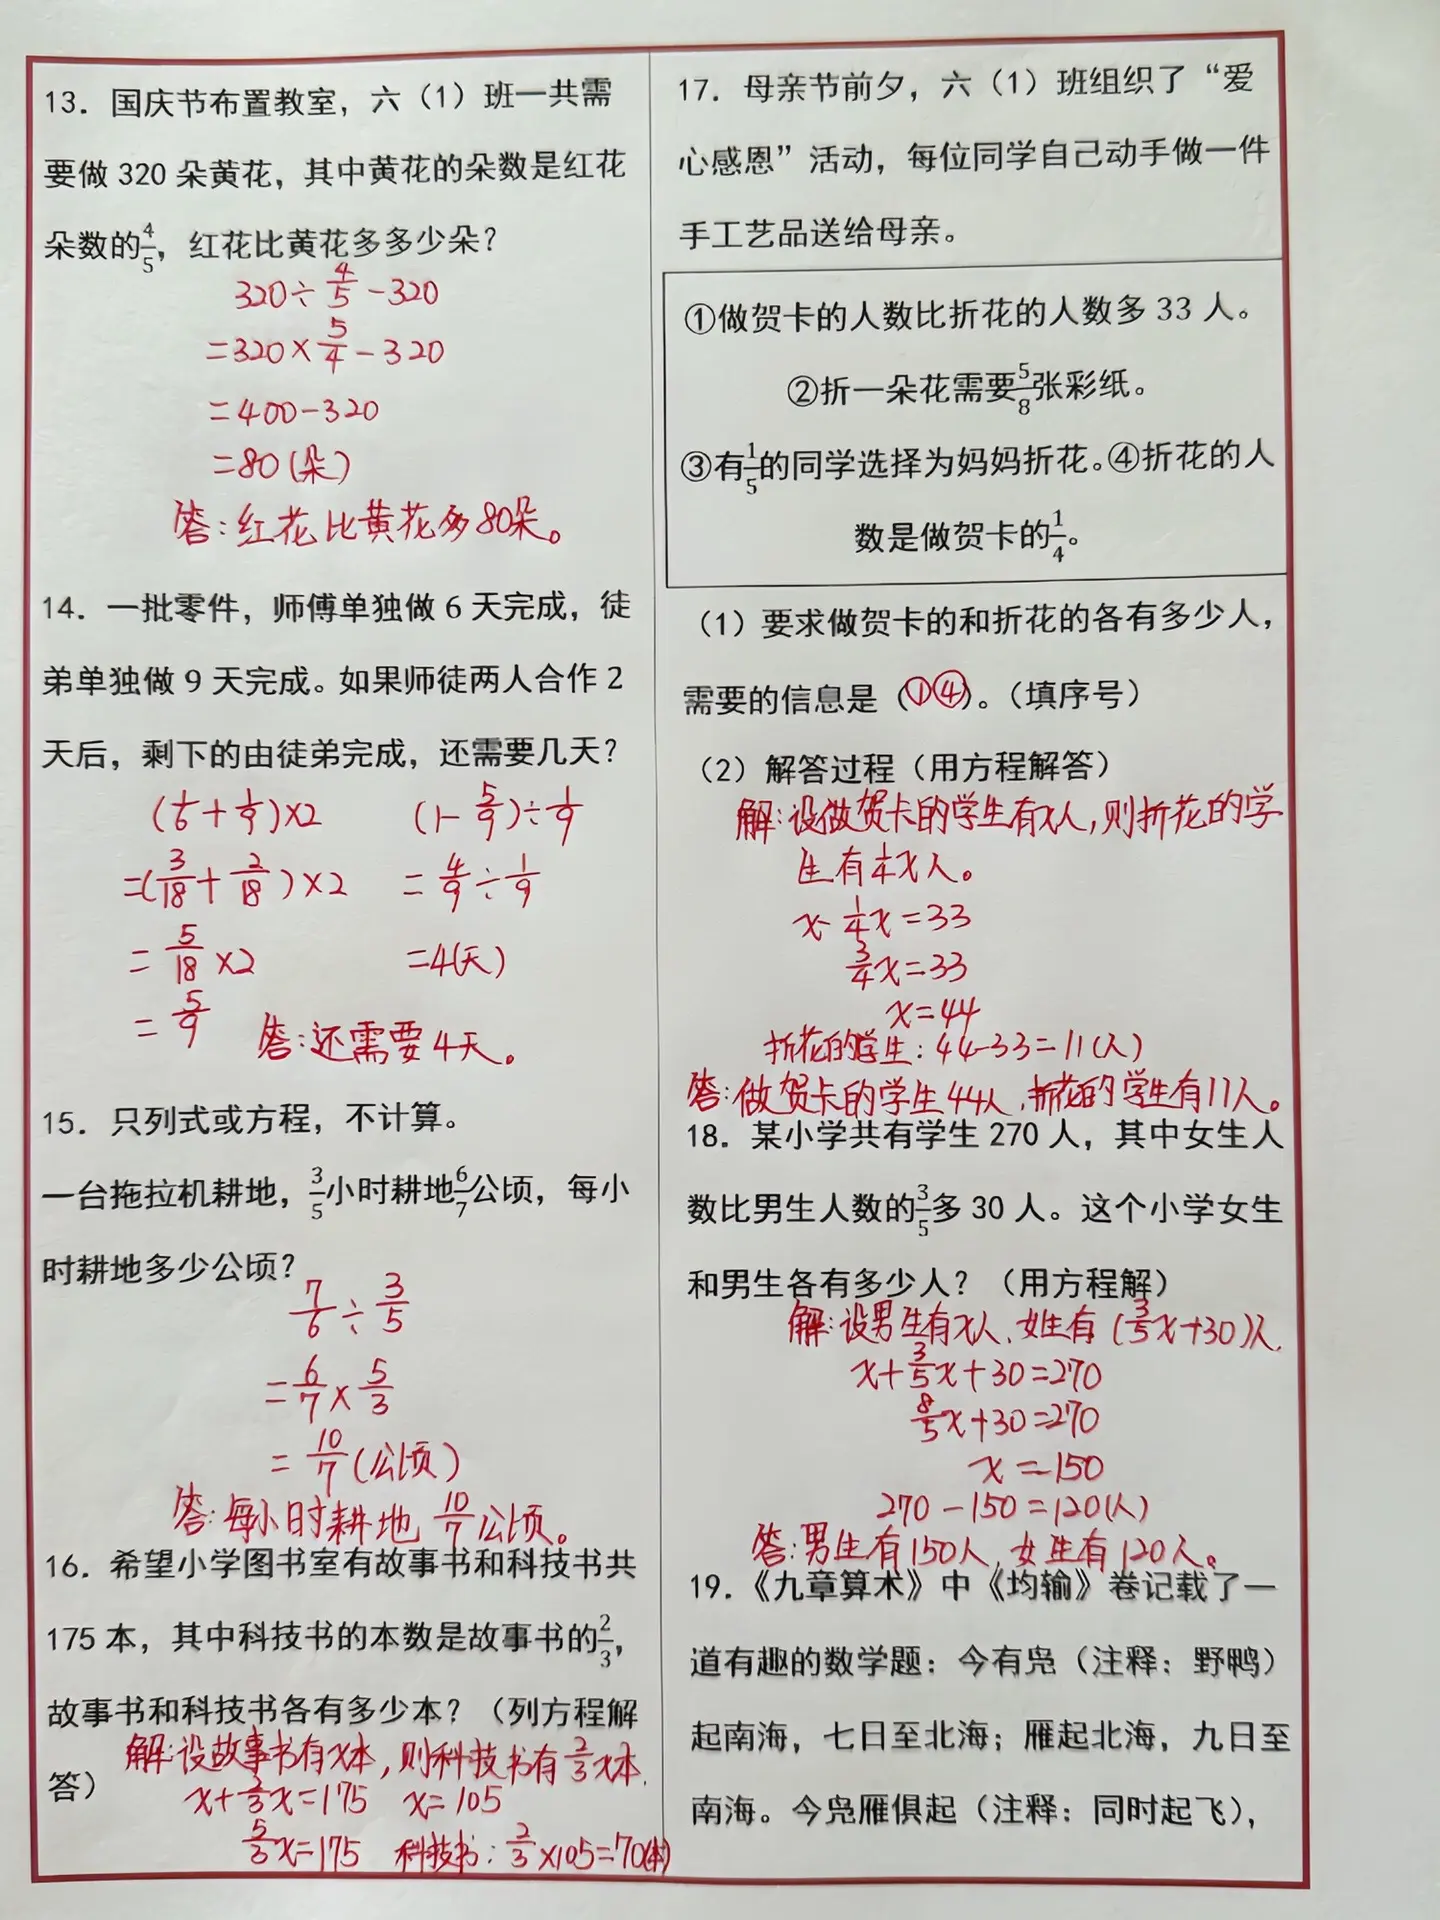 13．国庆节布置教室，六（1）班一共需
要做 320 朵黄花，其中黄花的朵数是红花
朵数的4/5，红花比黄花多多少朵？
320÷4/5-320
=320×5/4-320
=400-320
=80(朵)
答:红花比黄花多80朵。
14．一批零件，师傅单独做 6 天完成，徒
弟单独做 9 天完成。如果师徒两人合作 2
天后，剩下的由徒弟完成，还需要几天？
(1/6+1/9)×2 (1-5/9)÷1/9
=(3/18+2/18)×2 =4/9÷1/9
=5/18×2 =4(天)
=5/9 答:还需要4天。
15．只列式或方程，不计算。
一台拖拉机耕地，3/5小时耕地6/7公顷，每小
时耕地多少公顷？
7/6÷3/5
=6/7×5/3
=10/7(公顷)
答:每小时耕地10/7公顷。
16．希望小学图书室有故事书和科技书共
175 本，其中科技书的本数是故事书的2/3，
故事书和科技书各有多少本？（列方程解
答）
解:设故事书有x本,则科技书有2/3x本.
x+2/3x=175 x=105
5/3x=175 科技书:2/3×105=70(本)
17．母亲节前夕，六（1）班组织了“爱
心感恩”活动，每位同学自己动手做一件
手工艺品送给母亲。
①做贺卡的人数比折花的人数多 33 人。
②折一朵花需要5/8张彩纸。
③有1/5的同学选择为妈妈折花。④折花的人
数是做贺卡的1/4。
（1）要求做贺卡的和折花的各有多少人，
需要的信息是（①④）。（填序号）
（2）解答过程（用方程解答）
解:设做贺卡的学生有x人,则折花的学
生有1/4x人。
x-1/4x=33
3/4x=33
x=44
折花的学生:44-33=11(人)
答:做贺卡的学生44人,折花的学生有11人。
18．某小学共有学生 270 人，其中女生人
数比男生人数的3/5多 30 人。这个小学女生
和男生各有多少人？（用方程解）
解:设男生有x人、女生有(3/5x+30)人.
x+3/5x+30=270
8/5x+30=270
x=150
270-150=120(人)
答:男生有150人,女生有120人。
19．《九章算术》中《均输》卷记载了一
道有趣的数学题：今有凫（注释：野鸭）
起南海，七日至北海；雁起北海，九日至
南海。今凫雁俱起（注释：同时起飞），